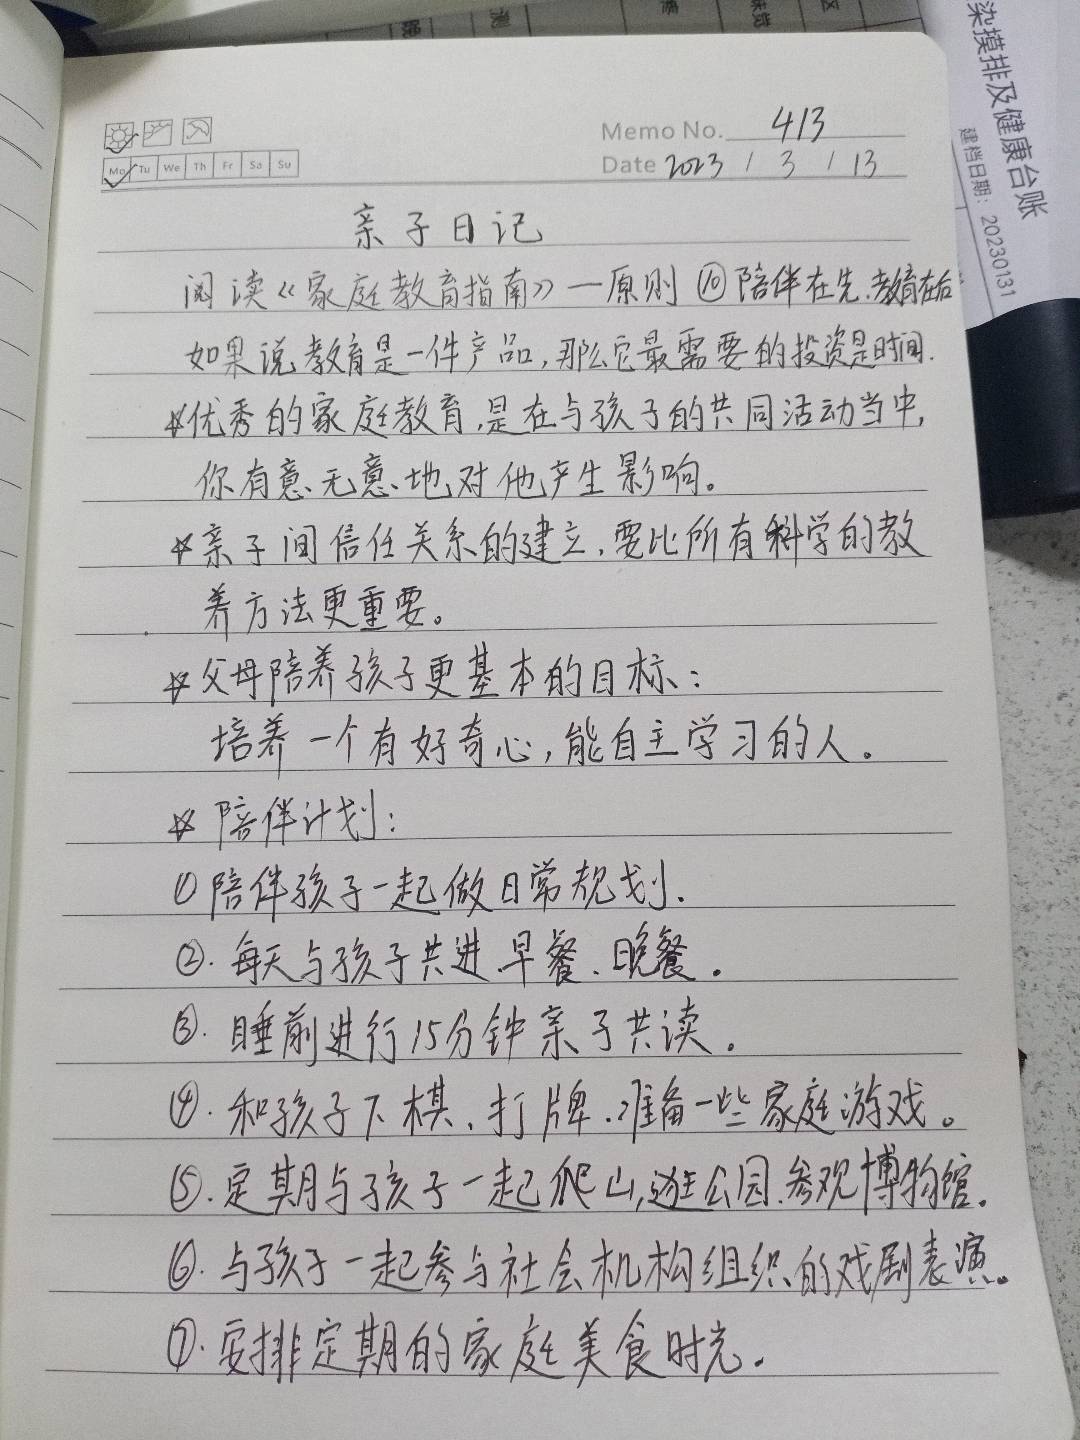 Memo No. 413
Mo Tu We Th Fr Sa Su
Date 2023 / 3 / 13
亲子日记
阅读《家庭教育指南》一原则⑩陪伴在先.教育在后
如果说教育是一件产品,那么它最需要的投资是时间.
☆优秀的家庭教育,是在与孩子的共同活动当中,
你有意、无意、地对他产生影响。
☆亲子间信任关系的建立,要比所有科学的教
养方法更重要。
☆父母陪养孩子更基本的目标:
培养一个有好奇心,能自主学习的人。
☆陪伴计划:
①陪伴孩子一起做日常规划.
②.每天与孩子共进早餐、晚餐.
③.睡前进行15分钟亲子共读。
④.和孩子下棋、打牌.准备一些家庭游戏。
⑤.定期与孩子一起爬山,逛公园.参观博物馆.
⑥.与孩子一起参与社会机构组织的戏剧表演。
⑦.安排定期的家庭美食时光.
染摸排及健康台账
建档日期：20230131